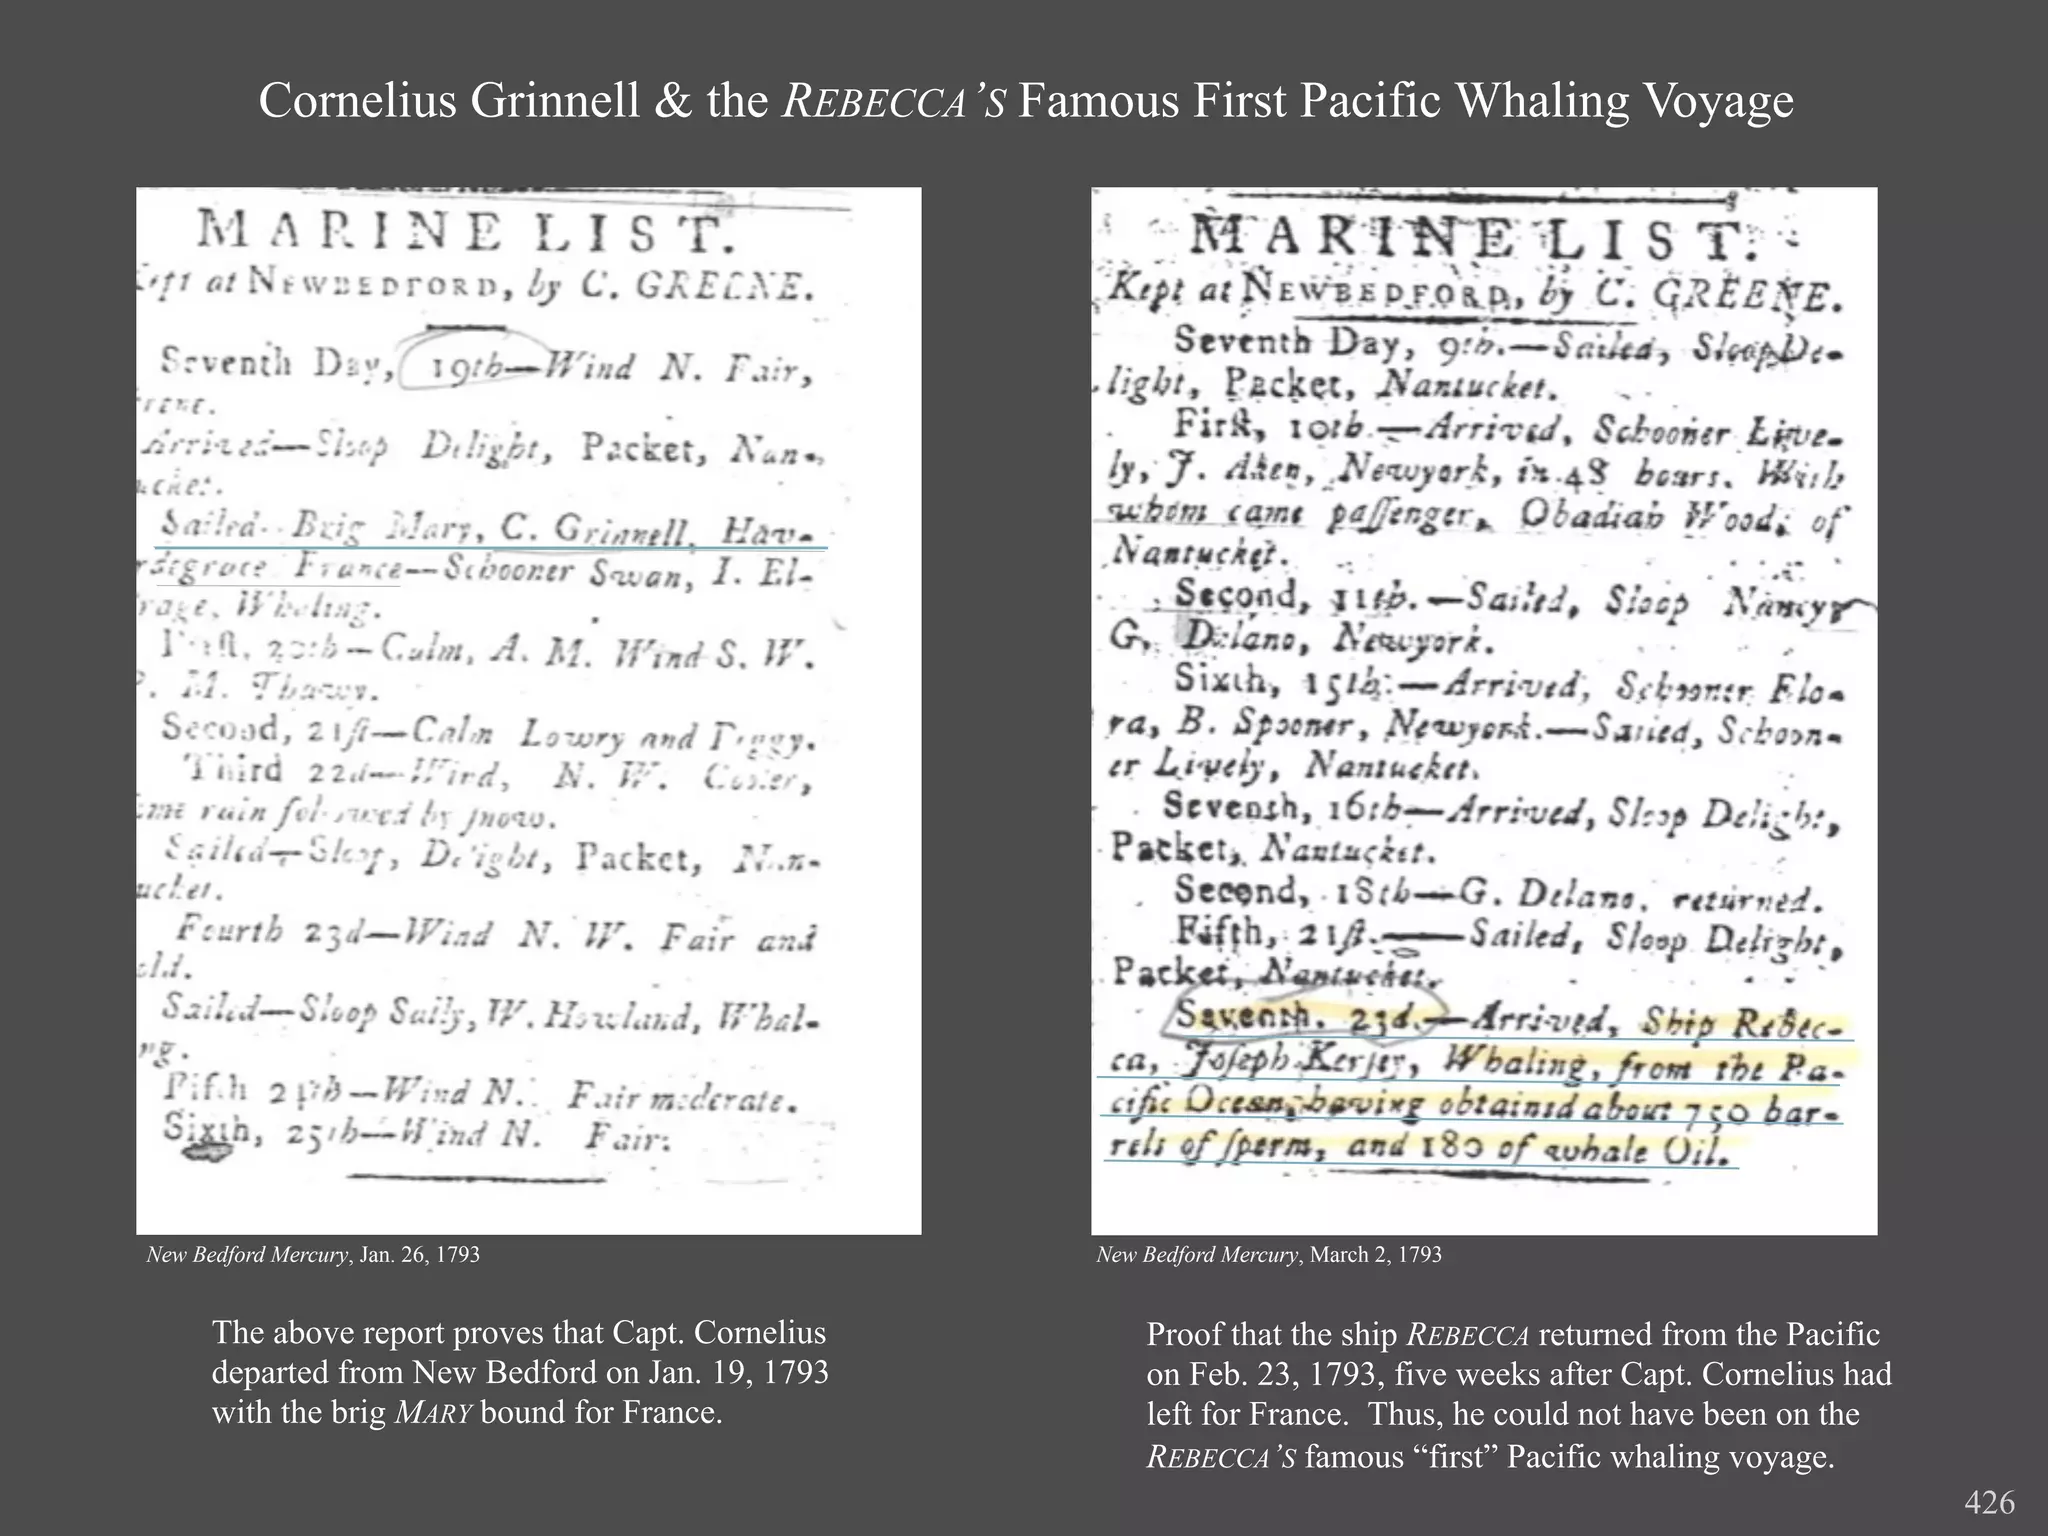 Cornelius Grinnell & the REBECCA’S Famous First Pacific Whaling Voyage
MARINE LIST.
at NEWBEDFORD, by C. GREENE.
Seventh Day, 19th—Wind N. Fair,
Arrived—Sloop Delight, Packet, Nan-
ucket.
Sailed—Brig Mary, C. Grinnell, Hav-
France—Schooner Swan, I. El-
Whaling.
First, 20th—Calm, A. M. Wind S. W.
M. Thawy.
Second, 21ſt—Calm Lowry and Foggy.
Third 22d—Wind, N. W. Cooler,
rain followed by ſnow.
Sailed—Sloop, Delight, Packet, Nan-
ucket.
Fourth 23d—Wind N. W. Fair and
old.
Sailed—Sloop Sally, W. Howland, Whal-
ng.
Fifth 24th—Wind N. Fair moderate.
Sixth, 25th—Wind N. Fair.
MARINE LIST.
Kept at NEWBEDFORD, by C. GREENE.
Seventh Day, 9th.—Sailed, Sloop De-
light, Packet, Nantucket.
Firſt, 10th.—Arrived, Schooner Live-
ly, J. Aken, Newyork, in 48 hours. With
whom came paſſenger, Obadiah Wood, of
Nantucket.
Second, 11th.—Sailed, Sloop Nancy,
G. Delano, Newyork.
Sixth, 15th.—Arrived, Schooner Flo-
ra, B. Spooner, Newyork.—Sailed, Schoon-
er Lively, Nantucket.
Seventh, 16th—Arrived, Sloop Delight,
Packet, Nantucket.
Second, 18th—G. Delano, returned.
Fifth, 21ſt.—Sailed, Sloop Delight,
Packet, Nantucket.
Seventh, 23d.—Arrived, Ship Rebec-
ca, Joſeph Whaling, from the Pa-
cific Ocean, having obtained about 750 bar-
rels of ſperm, and 180 of whale Oil.
New Bedford Mercury, Jan. 26, 1793
New Bedford Mercury, March 2, 1793
The above report proves that Capt. Cornelius
departed from New Bedford on Jan. 19, 1793
with the brig MARY bound for France.
Proof that the ship REBECCA returned from the Pacific
on Feb. 23, 1793, five weeks after Capt. Cornelius had
left for France. Thus, he could not have been on the
REBECCA’S famous “first” Pacific whaling voyage.
426